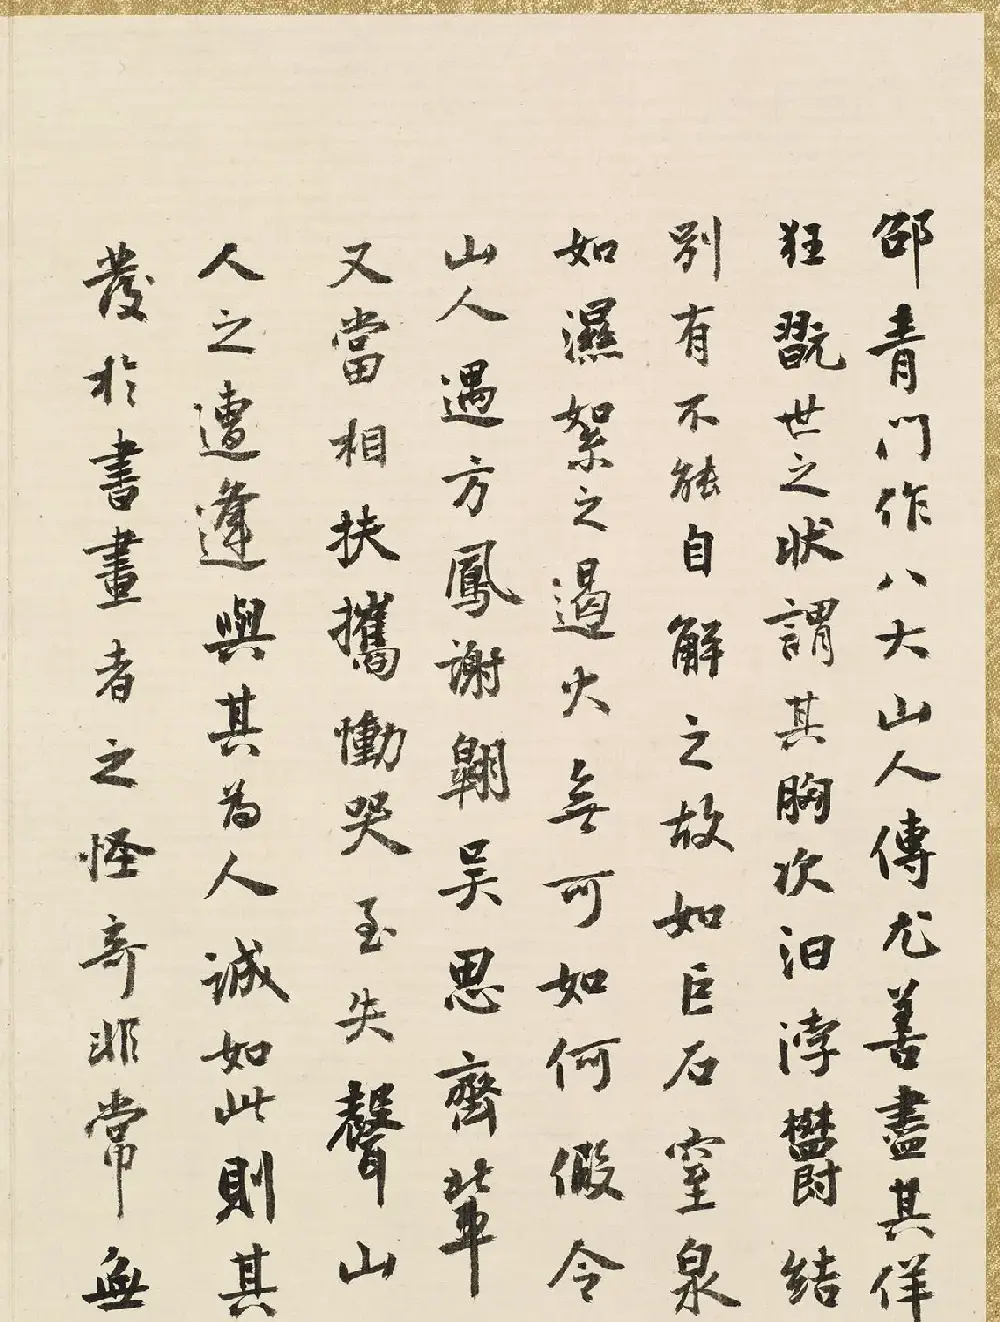 邵青門作八大山人傳尤善盡其佯
狂翫世之狀謂其胸次汨浡鬱結
別有不能自解之故如巨石窒泉
如濕絮之遏火無可如何假令
山人遇方鳳謝翺吳思齊輩
又當相扶攜慟哭至失聲山
人之遭逢與其為人誠如此則其
發於書畫者之怪奇非常無